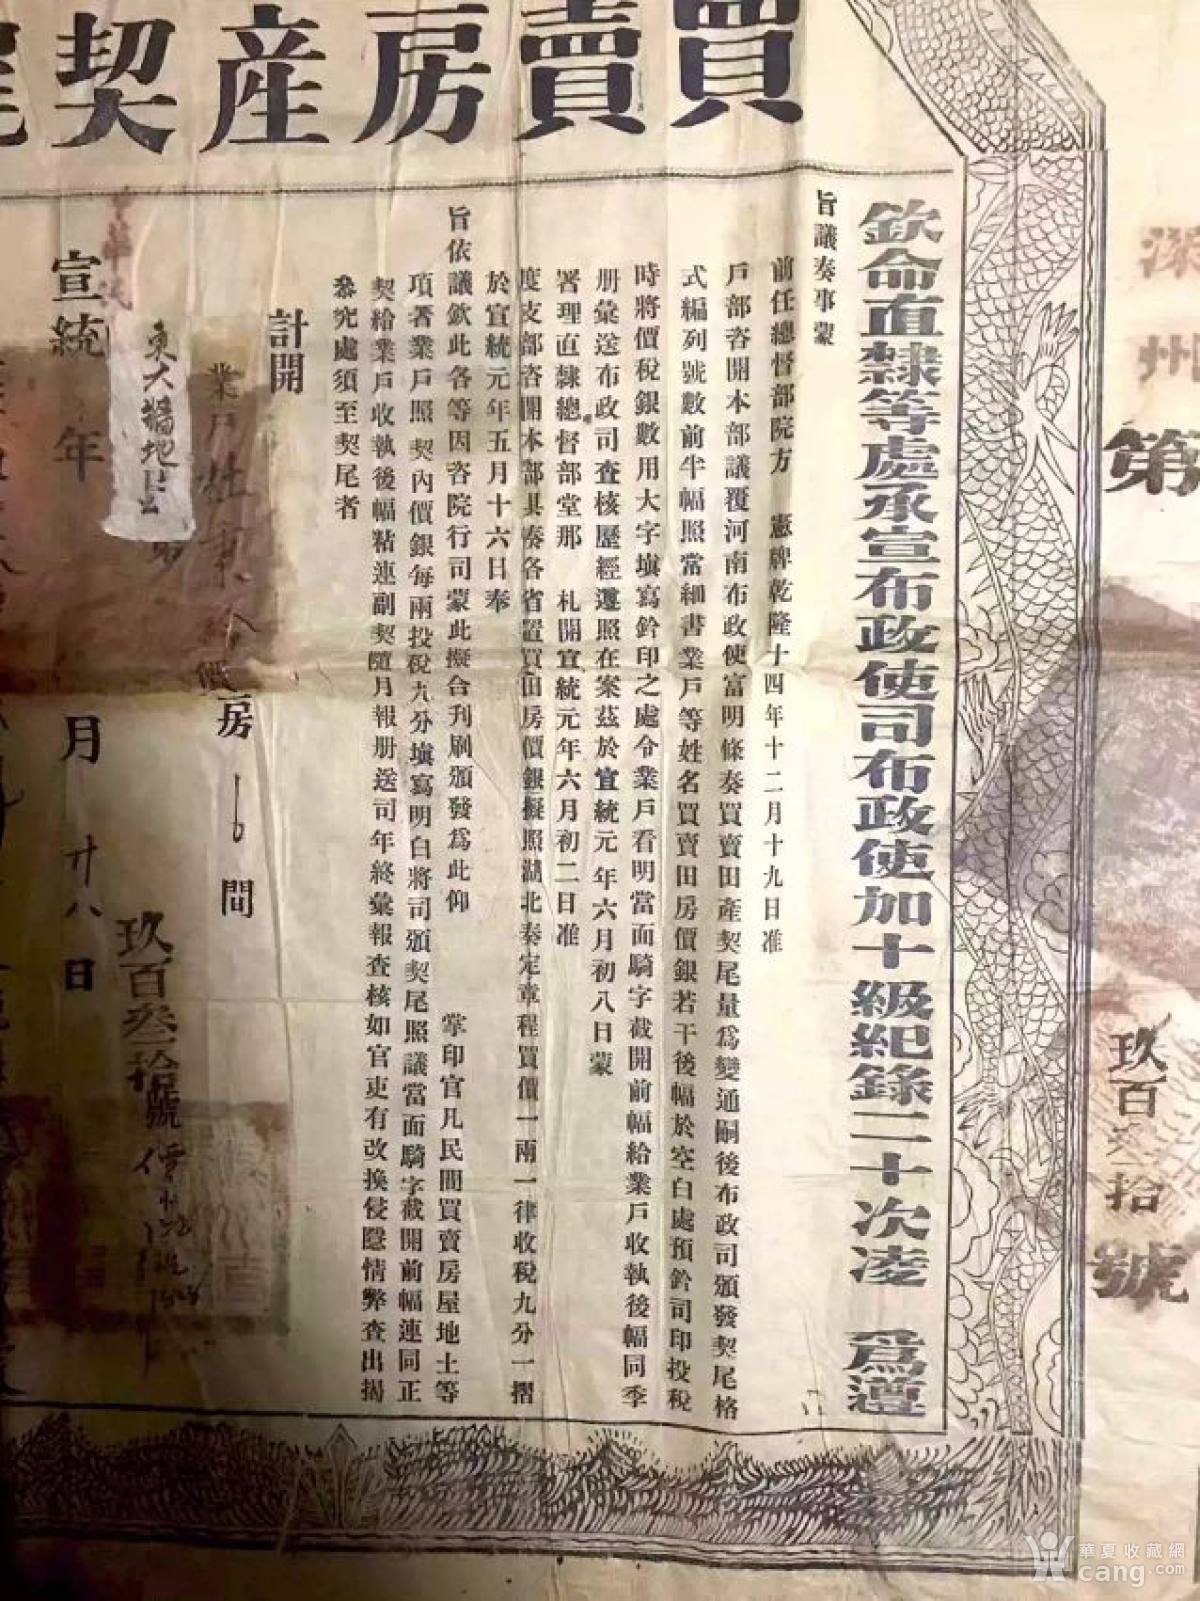 買賣房產契尾
深州
第
玖百叁拾
號
欽命直隸等處承宣布政使司布政使加十級紀錄二十次凌 為遵
旨議奏事蒙
前任總督部院方 憲牌乾隆十四年十二月十九日准
戶部咨開本部議覆河南布政使富明條奏買賣田產契尾量為變通嗣後布政司頒發契尾格
式編列號數前半幅照常細書業戶等姓名買賣田房價銀若干後幅於空白處預鈐司印投稅
時將價稅銀數用大字填寫鈐印之處令業戶看明當面騎字截開前幅給業戶收執後幅同季
册彙送布政司查核歷經遵照在案茲於宣統元年六月初八日蒙
署理直隸總督部堂那 札開宣統元年六月初二日准
度支部咨開本部具奏各省置買田房價銀擬照湖北奏定章程買價一兩一律收稅九分一摺
於宣統元年五月十六日奉
旨依議欽此各等因咨院行司蒙此擬合刊刷頒發為此仰 掌印官凡民間買賣房屋地土等
項著業戶照契內價銀每兩投稅九分填寫明白將司頒契尾照議當面騎字截開前幅連同正
契給業戶收執後幅粘連副契隨月報册送司年終彙報查核如官吏有改換侵隱情弊查出揭
叅究處須至契尾者
計開
業戶杜 房 間
東大 地
玖百叁拾號價
宣統 年 月 廿八日
華夏收藏網
cang.com